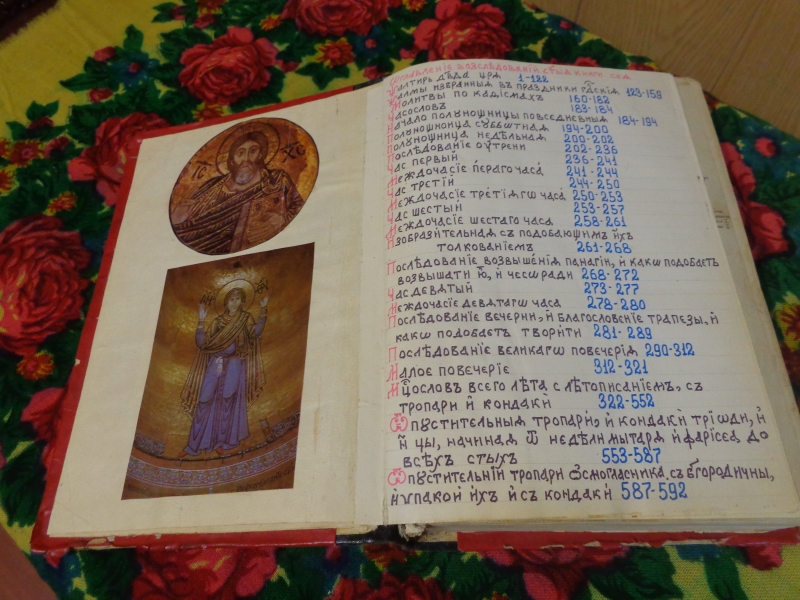 ІС ХС
Оглавленіе возслѣдованій сеѧ книги. сад
Ѱалтирь дв҃да цр҃ѧ 1-122
Ѱалмы избранныѧ въ праздники гдⷭ҇кіѧ 123-159
Молитвы по каѳісмахъ 160-182
Часословъ 183-184
Начало полунощницы повседневныѧ 184-194
Полунощница субботнаѧ 194-200
Полунощница недѣльнаѧ 200-202
Послѣдованіе оутрени 202-236
Час первый 236-241
Междочасіе перваго часа 241-244
Час третій 244-250
Междочасіе третіѧгѡ часа 250-253
Час шестый 253-257
Междочасіе шестаго часа 258-261
Изобразительнаѧ съ подобающимъ ихъ
толкованіемъ 261-268
Послѣдованіе возвышеніѧ панагіи, и какѡ подобаетъ
возвышати ю, и чесѡ ради 268-272
Час девѧтый 273-277
Междочасіе девѧтагѡ часа 278-280
Послѣдованіе вечерни, и благословеніе трапезы, и
какѡ подобаетъ творити 281-289
Послѣдованіе великагѡ повечеріѧ 290-312
Малое повечеріе 312-321
Мцⷭ҇ословъ всего лѣта с лѣтописаніемъ, съ
тропари и кондаки 322-552
Ѿпꙋстительныѧ тропари, и кондаки тріѡди, и
н҃цы, начинаѧ ѿ недѣли мытарѧ и фарісеа до
всѣхъ ст҃ыхъ 553-587
Ѿпꙋстительніи тропари ѻсмогласника, съ бг҃ородичны,
и ѵпакои ихъ и съ кондаки 587-592